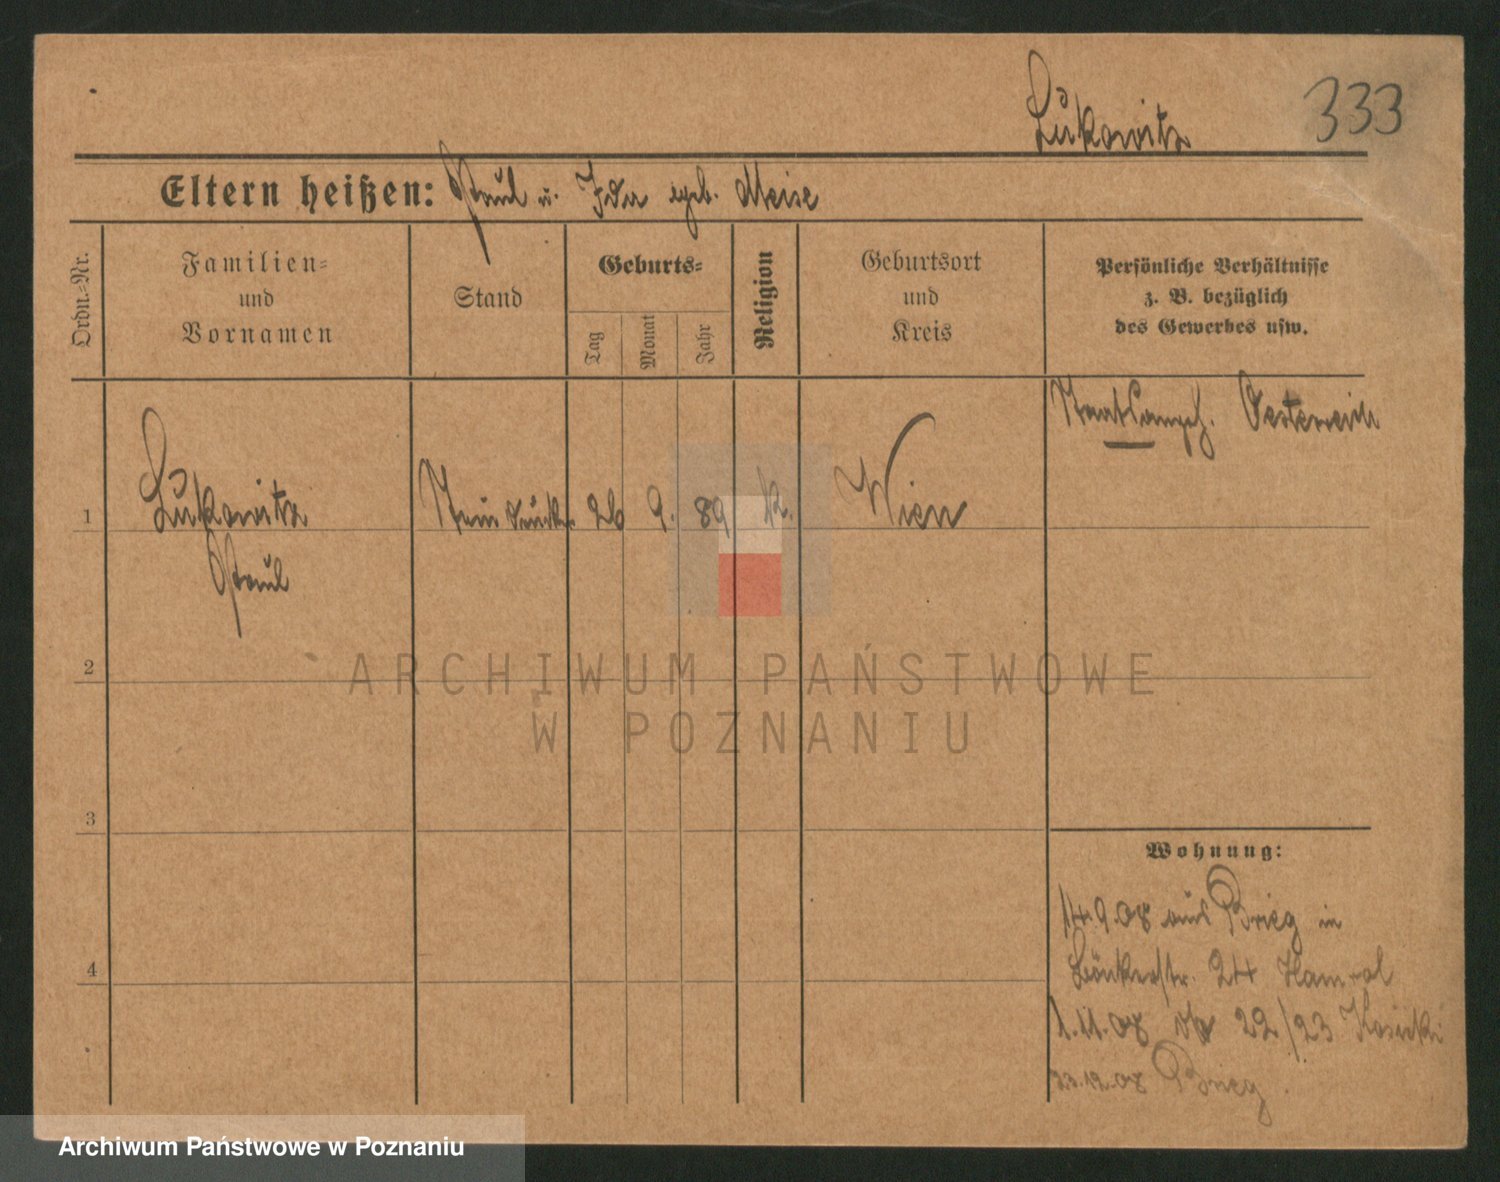 333
Lukowitz
Eltern heißen: Paul u. Ida geb. Meise
Ordn.-Nr.
Familien-
und
Vornamen
Stand
Geburts-
Tag
Monat
Jahr
Religion
Geburtsort
und
Kreis
Persönliche Verhältnisse
z. B. bezüglich
des Gewerbes usw.
Staatsangeh. Oesterreich
1 Lukowitz Steindrucker 26 9. 89 k. Wien
Paul
2
3
4
Wohnung:
14.9.08 aus Brieg in
24
1.11.08 22/23 Kosicki
23.12.08 Brieg.
ARCHIWUM PAŃSTWOWE
W POZNANIU
Archiwum Państwowe w Poznaniu